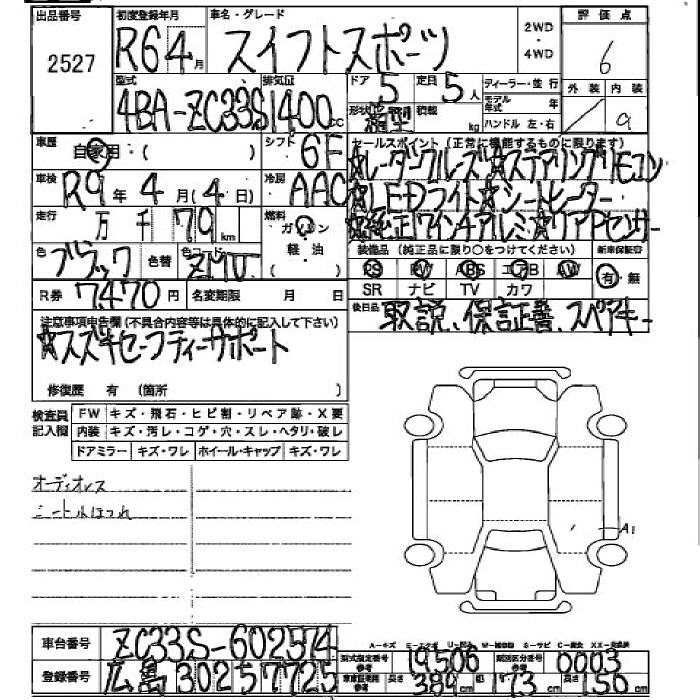 出品番号 初度登録年月 車名・グレード 2WD ・ 4WD 評価点
2527 R6 4月 スイフトスポーツ 6
型式 排気量 ドア 定員 ディーラー・並行 外装 内装
4BA-ZC33S 1400cc 5 5人 モデル年式 年
形状 箱型 積載 kg ハンドル 左・右 a
車歴 自家用・( ) シフト 6F セールスポイント(正常に機能するものに限ります)
☆レーダークルーズ☆ステアリングリモコン
車検 R9年 4月(4日) 冷房 AAC ☆LEDライト☆シートヒーター
走行 万 千 79 km 燃料 ガソリン ☆純正17インチアルミ☆リアPセンサー
軽油 ( )
色 ブラック 色替 色コード ZMV 装備品(純正品に限り○をつけてください) 新車保証書
PS PW ABS エアB AW 有・無
R券 7470円 名変期限 月 日 SR ナビ TV カワ
後日品 取説、保証書、スペアキー
注意事項申告欄(不具合内容等は具体的に記入して下さい)
☆スズキセーフティーサポート
修復歴 有 (箇所 )
検査員記入欄 FW キズ・飛石・ヒビ割・リペア跡・X要
内装 キズ・汚レ・コゲ・穴・スレ・ヘタリ・破レ
ドアミラー キズ・ワレ ホイール・キャップ キズ・ワレ
オーディオレス
シートルほつれ
A1
車台番号 ZC33S-602574
型式指定番号 参考 19506 類別区分番号 参考 0003
登録番号 広島 302 ち 7725 車庫証明用 参考 長さ 384cm 幅 173cm 高さ 150cm